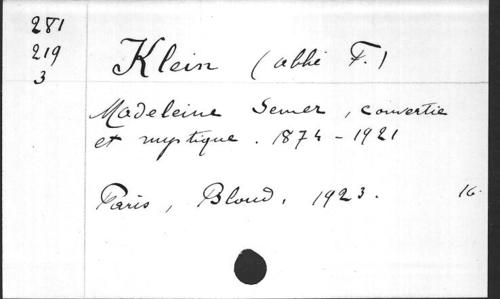 281
219
3
Klein (abbé F.)
Madeleine Semer, convertie
et mystique. 1874-1921
Paris, Bloud, 1923. 16.